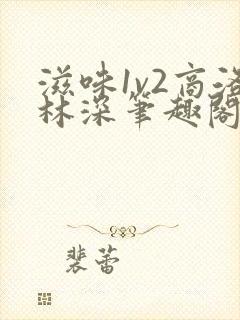 滋味1v2高洛
林深笔趣阁
裴蕾